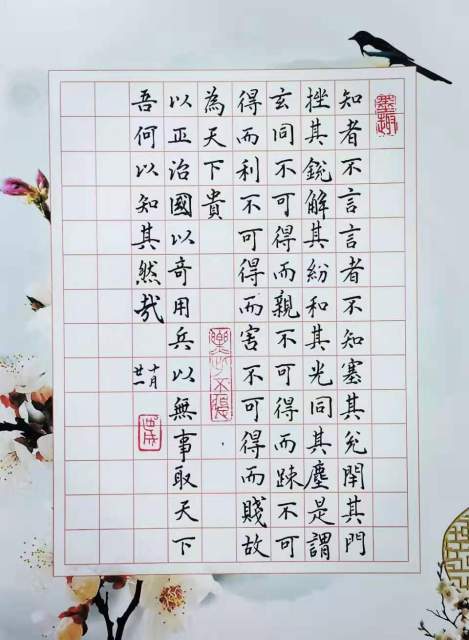 墨趣
知者不言言者不知塞其兌閉其門
挫其銳解其紛和其光同其塵是謂
玄同不可得而親不可得而踈不可
得而利不可得而害不可得而賤故
為天下貴
以正治國以奇用兵以無事取天下
吾何以知其然哉
十月
廿一